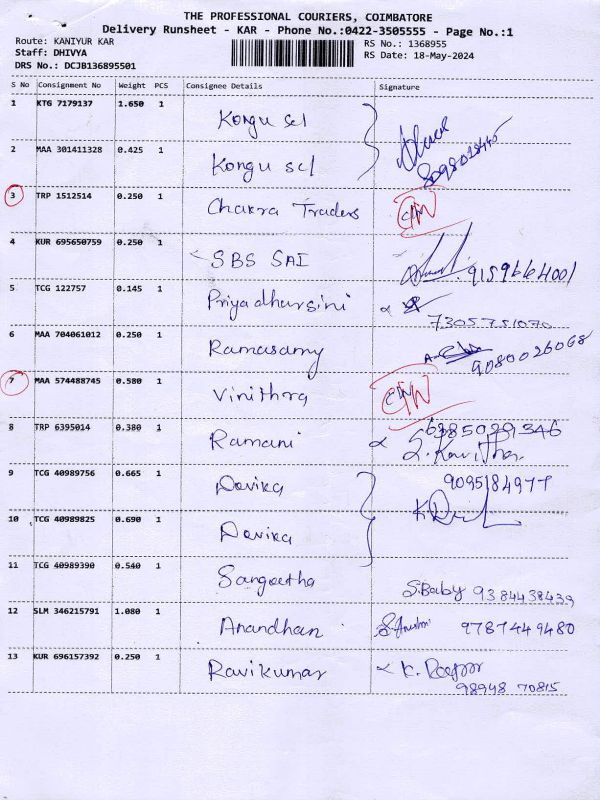 THE PROFESSIONAL COURIERS, COIMBATORE
Delivery Runsheet - KAR - Phone No.:0422-3505555 - Page No.:1
Route: KANIYUR KAR RS No.: 1368955
Staff: DHIVYA RS Date: 18-May-2024
DRS No.: DCJB136895501
S No Consignment No Weight PCS Consignee Details Signature
1 KTG 7179137 1.650 1 Kongu scl
2 MAA 301411328 0.425 1 Kongu scl
3 TRP 1512514 0.250 1 Chakra Traders
4 KUR 695650759 0.250 1 SBS SAI 9159664001
5 TCG 122757 0.145 1 Priyadharsini
7305751070
6 MAA 704061012 0.250 1 Ramasamy 9080026068
7 MAA 574488745 0.580 1 Vinithra
8 TRP 6395014 0.380 1 Ramani 6385029346
S. Kavitha
9 TCG 40989756 0.665 1 Devika 9095184977
10 TCG 40989825 0.690 1 Devika
11 TCG 40989390 0.540 1 Sangeetha S.Baby 9384438439
12 SLM 346215791 1.080 1 Anandhan 9787449480
13 KUR 696157392 0.250 1 Ravikumar K.
98948 70815